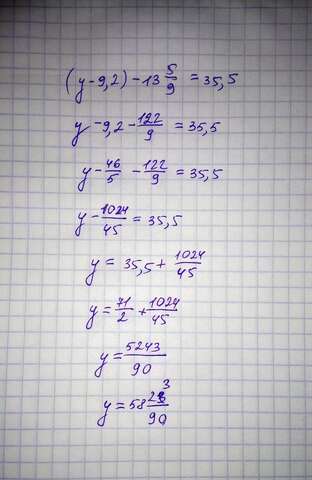 (y-9,2)-13 5/9 = 35,5
y-9,2-122/9 = 35,5
y-46/5-122/9 = 35,5
y-1024/45 = 35,5
y = 35,5+1024/45
y = 71/2+1024/45
y = 5243/90
y = 58 23/90